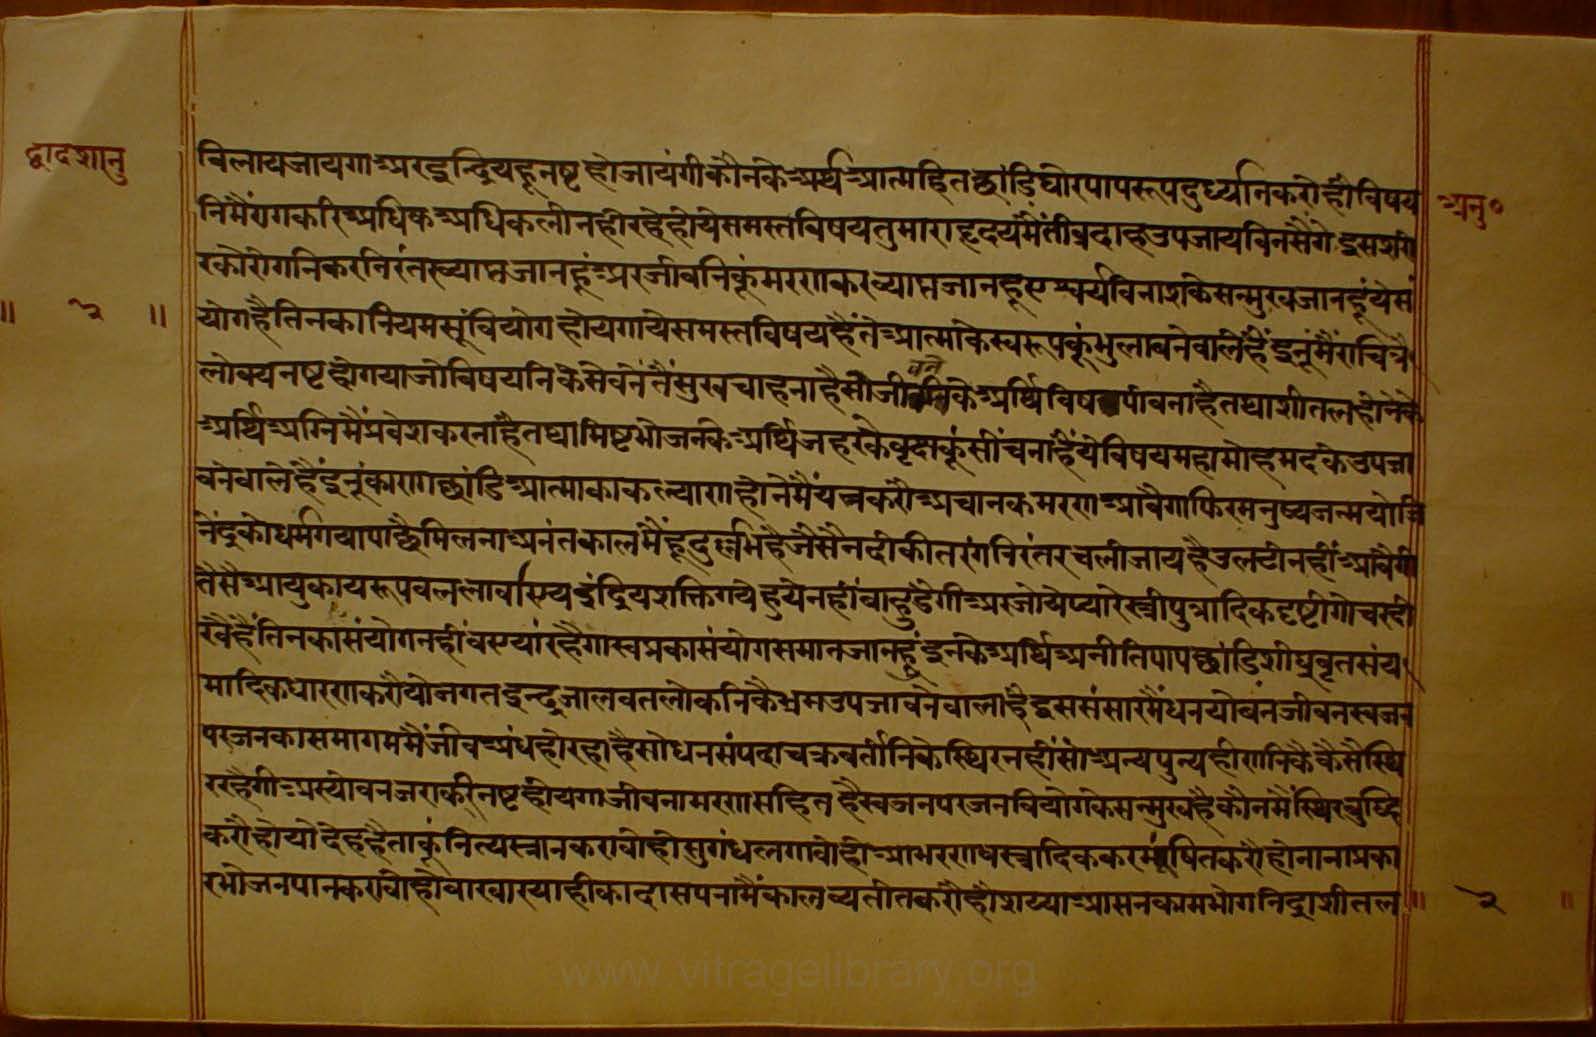 द्वादशानु
बिलायजायगाअरइन्द्रियहूनष्टहोजायंगीकौनकेअर्थआत्महितछांडिघोरपापरूपदुर्ध्यानकरोहौविषय
अनु॰
निमैंरागकरिअधिकअधिकलीनहोरहेहोयेसमस्तविषयतुमाराहृदयमेंतीव्रदाहउपजायविनसैंगेइसशरी
रकोरोगनिकरनिरंतरव्याप्तजानहूंअरजीवनिकूंमरणकरव्याप्तजानहूएश्वर्यविनाशकेसन्मुखजानहूंयेसं
॥ २ ॥
योगहैतिनकानियमसूंवियोगहोयगायेसमस्तविषयहैंतेआत्माकेस्वरूपकूंभुलावनेवालेहैंइनूंमैंराचित्रै
लोक्यनष्टहोगयाजोविषयनिकेसेवनेतैंसुखचाहनाहैसोजीवनेकेअर्थिविषपीवनाहैतथाशीतलहोनेके
अर्थिअग्निमैंप्रवेशकरनाहैतथामिष्टभोजनकेअर्थिजहरकेवृक्षकूंसींचनाहैंयेविषयमहामोहमदकेउपजा
वनेवालेहैंइनूंकारागछांडिआत्माकाकल्याणहोनेमैंयत्नकरौअचानकमरणआवैगाफिरमनुष्यजन्मयोजि
नेंद्रकोधर्मगयापाछैमिलनाअनंतकालमैंहूदुर्लभहैजैसैनदीकीतरंगनिरंतरचलीजायहैउलटीनहींआवैगी
तैसैआयुकायरूपबललावण्यइंद्रियशक्तिगयेहुयेनहींबाहुडेगीअरजोयेप्यारेस्त्रीपुत्रादिकदृष्टीगोचरदी
खैहैंतिनकासंयोगनहींवण्यांरहैगास्वप्नकासंयोगसमानजानहूंइनकेअर्थिअनीतिपापछांडिशीघ्रव्रतसंय
मादिकधारणकरौयोजगतइन्द्रजालवतलोकनिकैभ्रमउपजावनेवालाहैइससंसारमैंधनयोवनजीवनस्वजन
परजनकासमागममैंजीवअंधहोरहाहैसोधनसंपदाचक्रवर्तीनिकेस्थिरनहींसोअन्यपुन्यहीणनिकैकैसैस्थि
ररहैगीअरयोवनजराकरिनष्टहोयगाजीवनामरणसहितहैस्वजनपरजनवियोगकेसन्मुखहैकौनमैंस्थिरबुद्धि
करौहोयोदेहहैताकूंनित्यस्नानकरावोहोसुगंधलगावोहोआभरणवस्त्रादिककरभूषितकरौहोनानाप्रका
रभोजनपानकरावोहोवारवारयाहीकादासपनामैंकालव्यतीतकरौहौशय्याआसनकामभोगनिद्राशीतल
॥ २ ॥
www.vitragelibrary.org